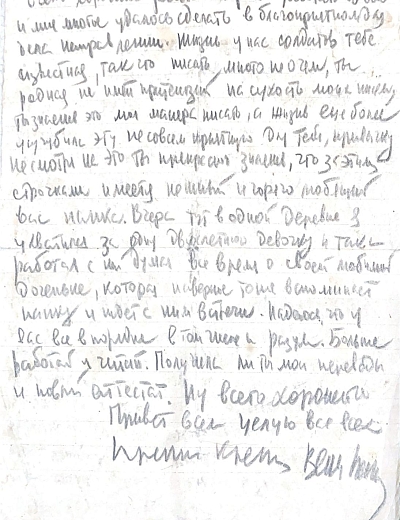 и мне многое удалось сделать в благоприятном для
дела направлении. Жизнь у нас солдатов тебе
известная, так что писать много не о чем, ты
родная не имей претензий на сухость моих писем
ты знаешь это моя манера писать, а жизнь еще более
усугубила эту не совсем приятную для тебя, привычку
несмотря на это ты прекрасно знаешь, что за этими
строчками имеется не живой и горячо любящий
вас папка. Вчера тут в одной деревне я
ухватился за одну двухлетнюю девочку и так
работал с ней думая все время о своей любимой
доченьке, которая наверное тоже вспоминает
папку и ждет с ним встречи. Надеюсь, что у
Вас все в порядке в том числе и разум. Больше
работай и читай. Получила ли ты мои переводы
и новый аттестат. Ну всего хорошего
Привет всем целую все всех
Крепко крепко Ваш